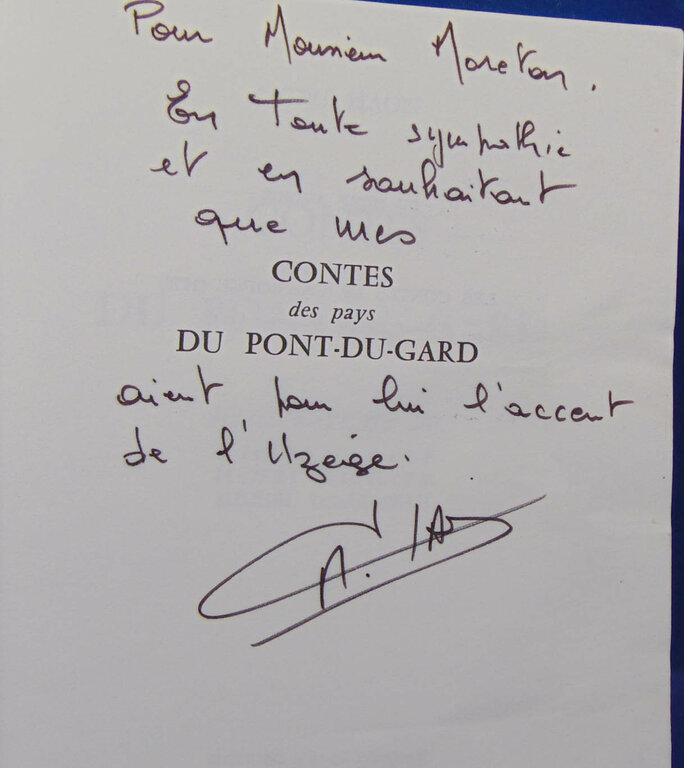 Pour Monsieur Moreton.
En toute sympathie
et en souhaitant
que mes
CONTES
des pays
DU PONT-DU-GARD
aient pour lui l'accent
de l'Uzège.